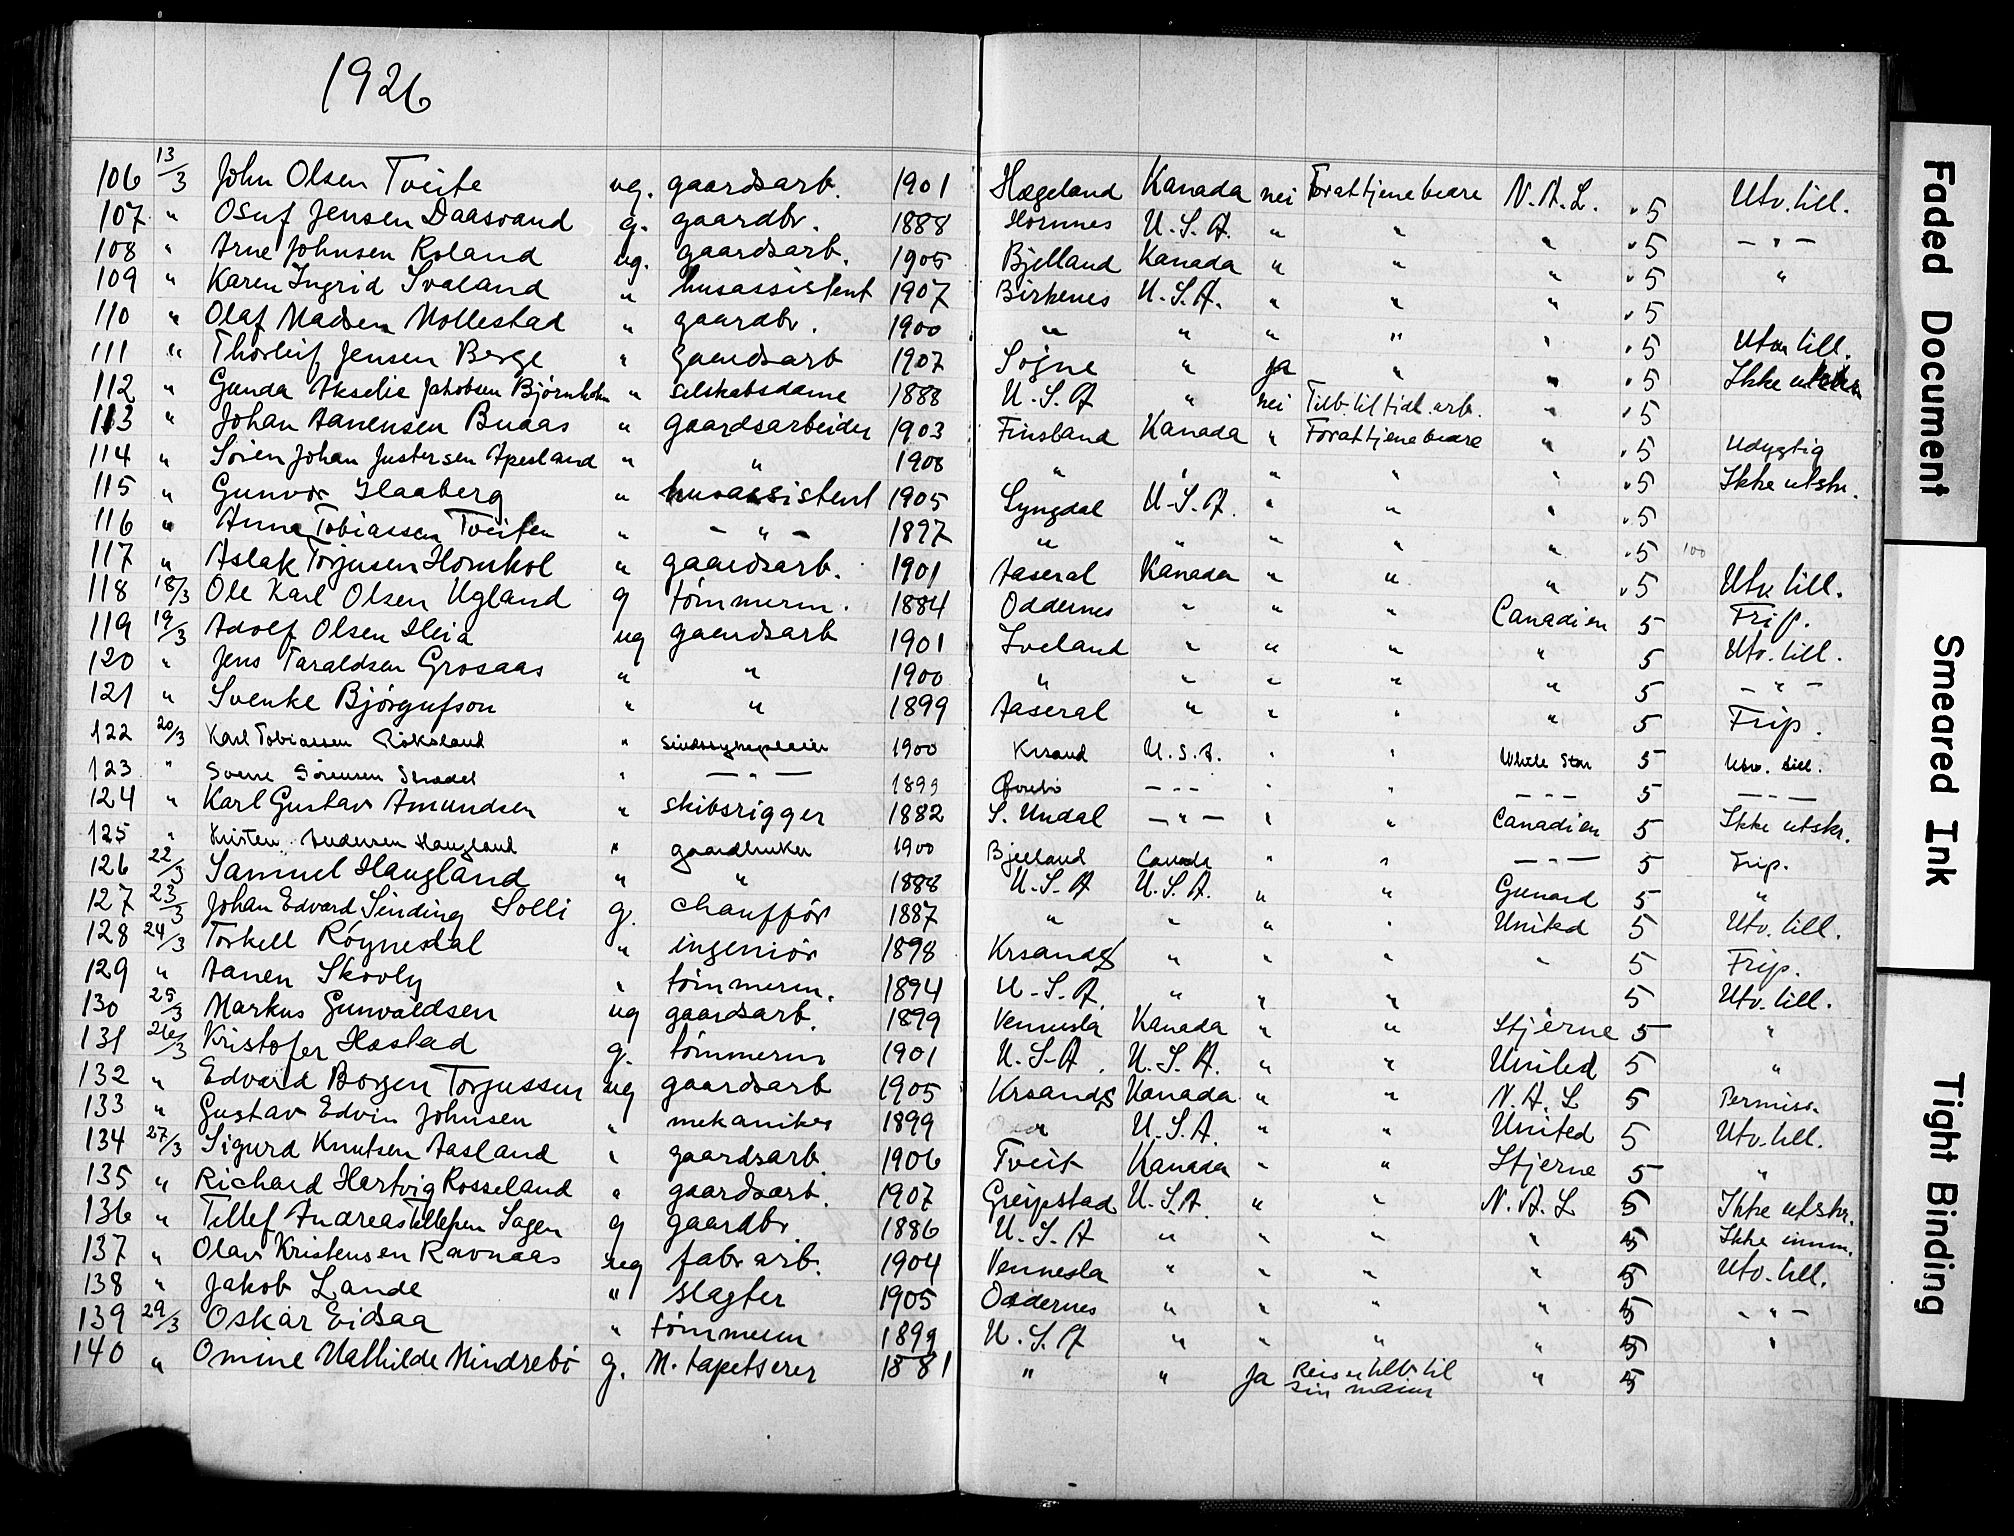 1926
106 13/3 John Olsen Tveite ug. gaardsarb. 1901 Hægeland Kanada nei For at tjene bedre N.A.L. . 5 Utv. till.
107 " Osuf Jensen Daasvand g. gaardbr. 1888 Hornnes U.S.A. " " " . 5 — " —
108 " Arne Johnsen Roland ug. gaardsarb. 1905 Bjelland Kanada " " " . 5 "
109 " Karen Ingrid Svaland " husassistent 1907 Birkenes U.S.A. " " " . 5
110 " Olaf Madsen Mollestad " gaardbr. 1900 " " " " " . 5 Utv. till.
111 " Thorleif Jensen Berge " gaardsarb 1907 Søgne " ja " " . 5 Ikke utskr.
112 " Gunda Akselie Jakobsen Bjørnholm " selskabsdame 1888 U.S.A " nei Tilb. til tidl. arb. " . 5
113 " Johan Aanensen Buaas " gaardsarbeider 1903 Finsland Kanada " For at tjene bedre " . 5 Udygtig
114 " Søren Johan Justersen Apesland " " 1908 " " " " " . 5 Ikke utskr.
115 " Gunvor Haaberg " husassistent 1905 Lyngdal U.S.A. " " " . 5
116 " Anna Tobiassen Tveiten " — " — 1897 " " " " " . 5 100
117 " Aslak Torjusen Homkol " gaardsarb. 1901 Aaseral Kanada " " " . 5 Utv. till.
118 18/3 Ole Karl Olsen Ugland g tømmerm. 1884 Oddernes " " " Canadien 5 Frip.
119 19/3 Adolf Olsen Heia ug gaardsarb 1901 Iveland " " " " 5 Utv. till.
120 " Jens Taraldsen Grosaas " " 1900 " " " " " 5 — " —
121 " Svenke Bjørgufson " " 1899 Aaseral " " " " 5 Frip.
122 20/3 Karl Tobiassen Røksland " sindssygepleier 1900 Krsand U.S.A. " " White Star 5 Utv. till.
123 " Sverre Sørensen " — " — 1899 Øvrebø — " — " " — " — 5 — " —
124 " Karl Gustav Amundsen " skibsrigger 1882 S. Undal — " — " " Canadien 5 Ikke utskr.
125 " Kristen Andersen Haugland " gaardbruker 1900 Bjelland Canada " " — " — 5 Frip.
126 22/3 Samuel Haugland " " 1888 U.S.A U.S.A. " " Cunard 5 "
127 23/3 Johan Edvard Sinding Solli g. chauffør 1887 " " " " United 5 Utv. till.
128 24/3 Torkell Røynesdal " ingeniør 1898 Krsands " " " " 5 Frip.
129 " Aanen Skovly " tømmerm. 1894 U.S.A. " " " 5 Utv. till.
130 25/3 Markus Gunvaldsen ug gaardsarb. 1899 Vennesla Kanada " " Stjerne 5 "
131 26/3 Kristofer Hastad g. tømmerm 1901 U.S.A. U.S.A. " " United 5 "
132 " Edvard Borgen Torjussen ug gaardsarb 1905 Krsands Kanada " " N.A.L 5 Permiss.
133 " Gustav Edvin Johnsen " mekaniker 1899 U.S.A. " " United 5 Utv. till.
134 27/3 Sigurd Knutsen Aasland " gaardsarb. 1906 Tveit Kanada " " Stjerne 5 "
135 " Richard Hartvig Rosseland " gaardsarb. 1907 Greipstad U.S.A. " " N.A.L 5 Ikke utskr.
136 " Tellef Andreas Tellefsen Sagen g gaardbr 1886 U.S.A " " " " 5 Ikke innm.
137 " Olav Kristensen Ravnaas ug fabr arb. 1904 Vennesla " " " " 5 Utv. till.
138 " Jakob Lande " slagter 1905 Oddernes " " " " 5 — " —
139 29/3 Oskar Eidsaa " tømmerm 1899 U.S.A " " " " 5 "
140 " Omine Mathilde Mindrebø g. M. tapetserer 1881 " " Ja Reiser tilb til " 5
sin mann
Faded Document
Smeared Ink
Tight Binding